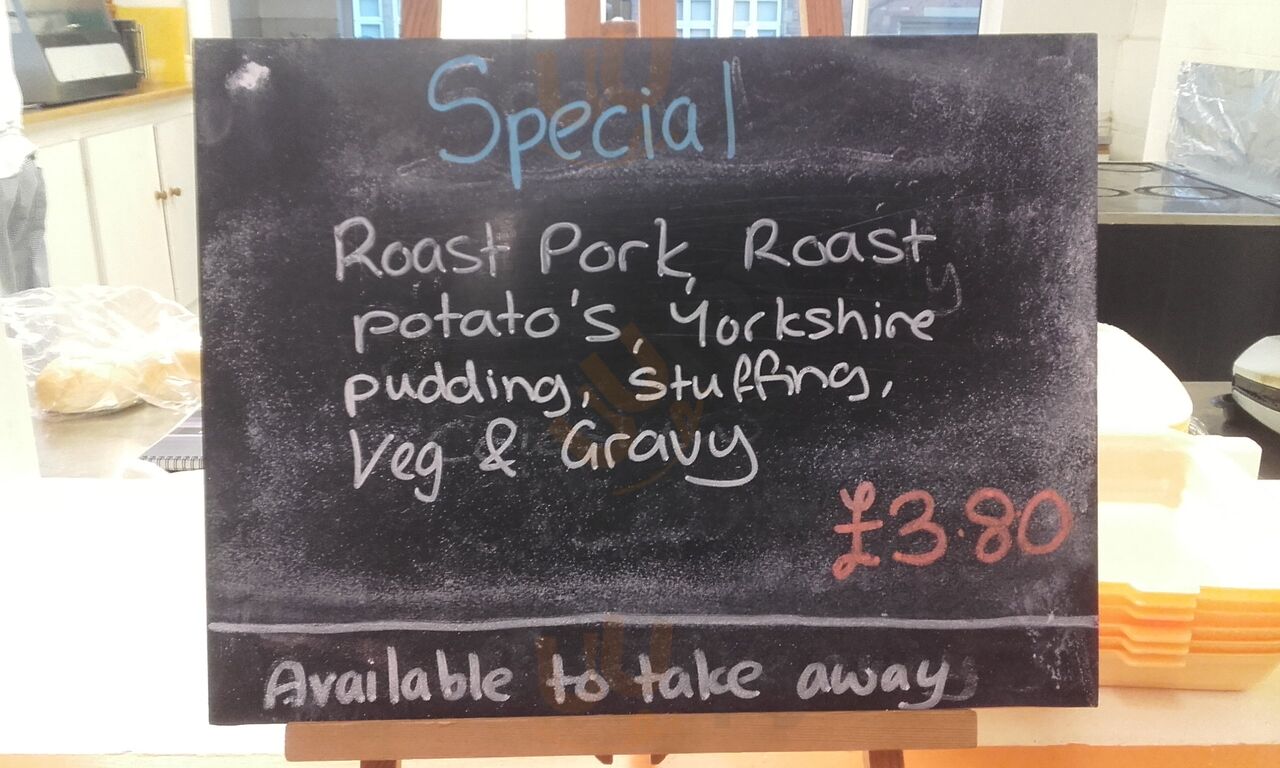 Special
Roast Pork, Roast
potato's, Yorkshire
pudding, stuffing,
Veg & Gravy
£3.80
Available to take away